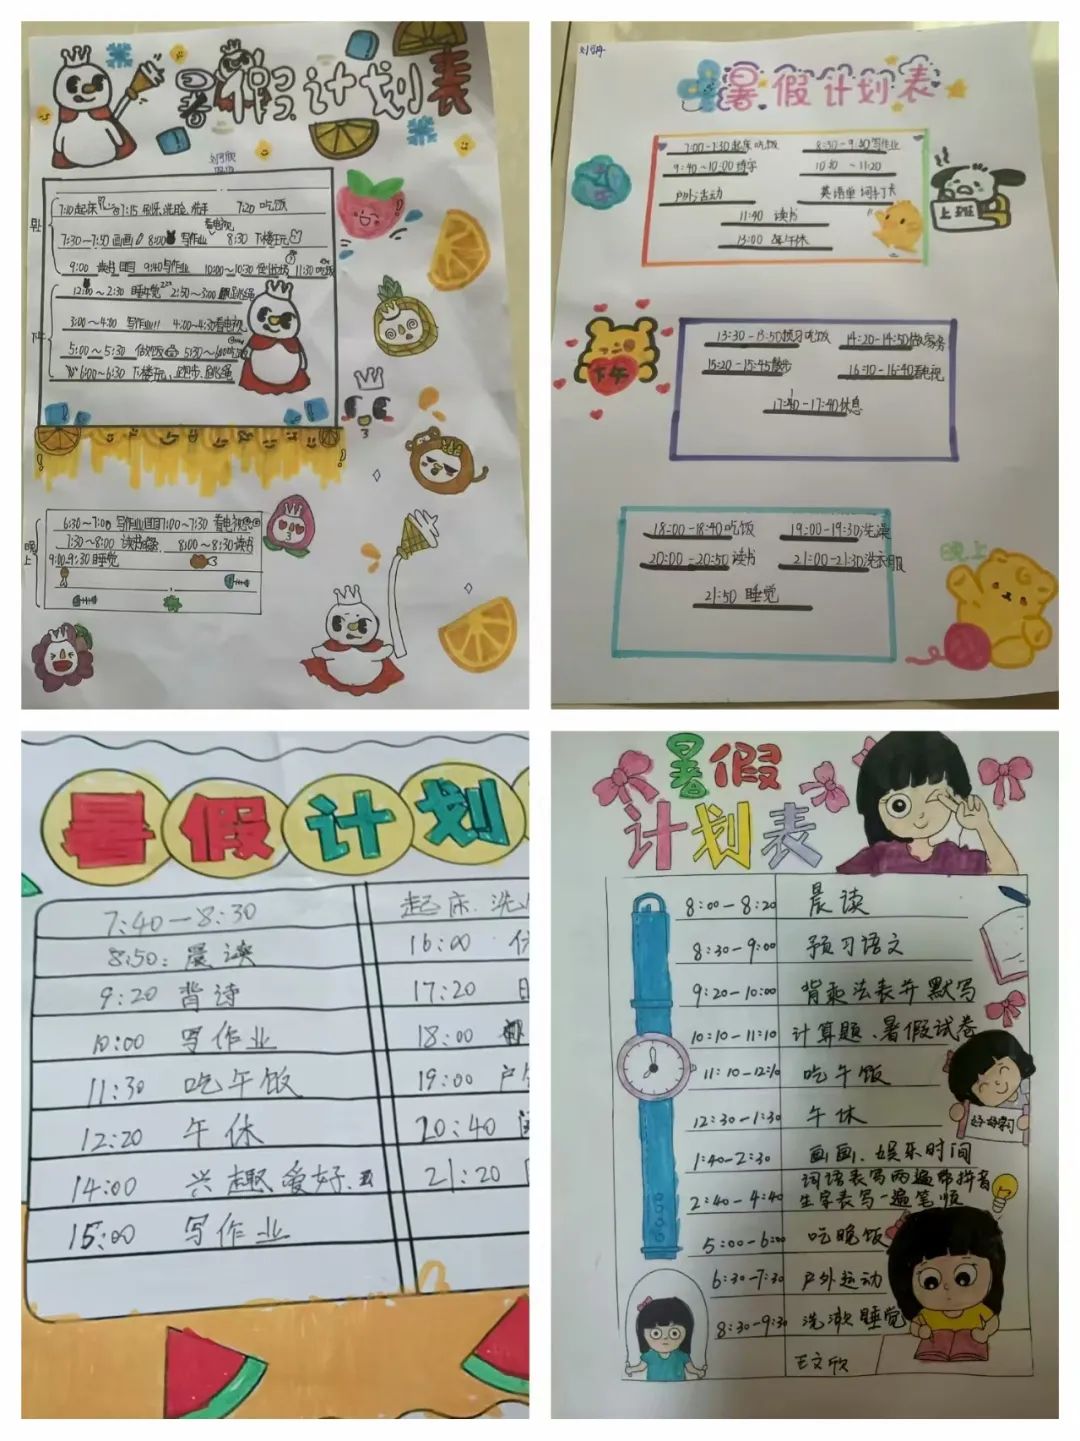 暑假计划表
7:10起床 7:15 刷牙.洗脸 7:20 吃饭
早上
7:30~7:50 画画 8:00 写作业 看电视 8:30 下楼玩
9:00 9:40写作业 10:00~10:30 11:30吃饭
下午
12:00~2:30 睡午觉 2:50~3:00 跳绳
3:00~4:00 写作业!!! 4:00~4:30看电视
5:00~5:30 做晚饭 5:30~6:00吃饭
6:00~6:30 下楼玩、跑步、跳绳
晚上
6:30~7:00 写作业 7:00~7:30 看电视
7:30~8:00 8:00~8:30读书
9:00~9:30 睡觉
暑假计划表
7:00-7:30起床吃饭 8:30-9:40写作业
9:40~10:00练字 10:40 ~11:20
户外活动 英语单词打卡
上班
11:40 读书
13:00 午休
下午
13:30-13:50预习吃饭 14:20-14:50做家务
15:20-15:45散步 16:10-16:40看电视
17:40-17:40休息
18:00-18:40吃饭 19:00-19:30洗澡
20:00-20:50读书 21:00-21:30洗衣服
晚上
21:50 睡觉
暑假计划
7:40—8:30 起床.洗
8:50: 晨读 16:00
9:20 背诗 17:20
10:00 写作业 18:00
11:30 吃午饭 19:00 户
12:20 午休 20:40
14:00 兴趣爱好. 21:20
15:00 写作业
暑假
计划表
8:00-8:20 晨读
8:30-9:00 预习语文
9:20-10:00 背乘法表并默写
10:10-11:10 计算题、暑假试卷
11:10-12:10 吃午饭
好好学习
12:30-1:30 午休
1:40-2:30 画画、娱乐时间
词语表写两遍带拼音
2:40-4:40 生字表写一遍笔顺
5:00-6:00 吃晚饭
6:30-7:30 户外运动
8:30-9:30 洗漱睡觉
王文欣